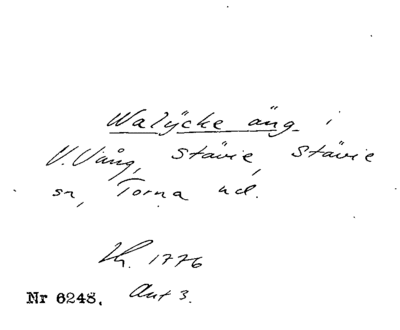 Walÿcke äng i
V. Vång, Stävie, Stävie
sn, Torna hd.
Lh. 1776
Nr 6248. Akt 3.